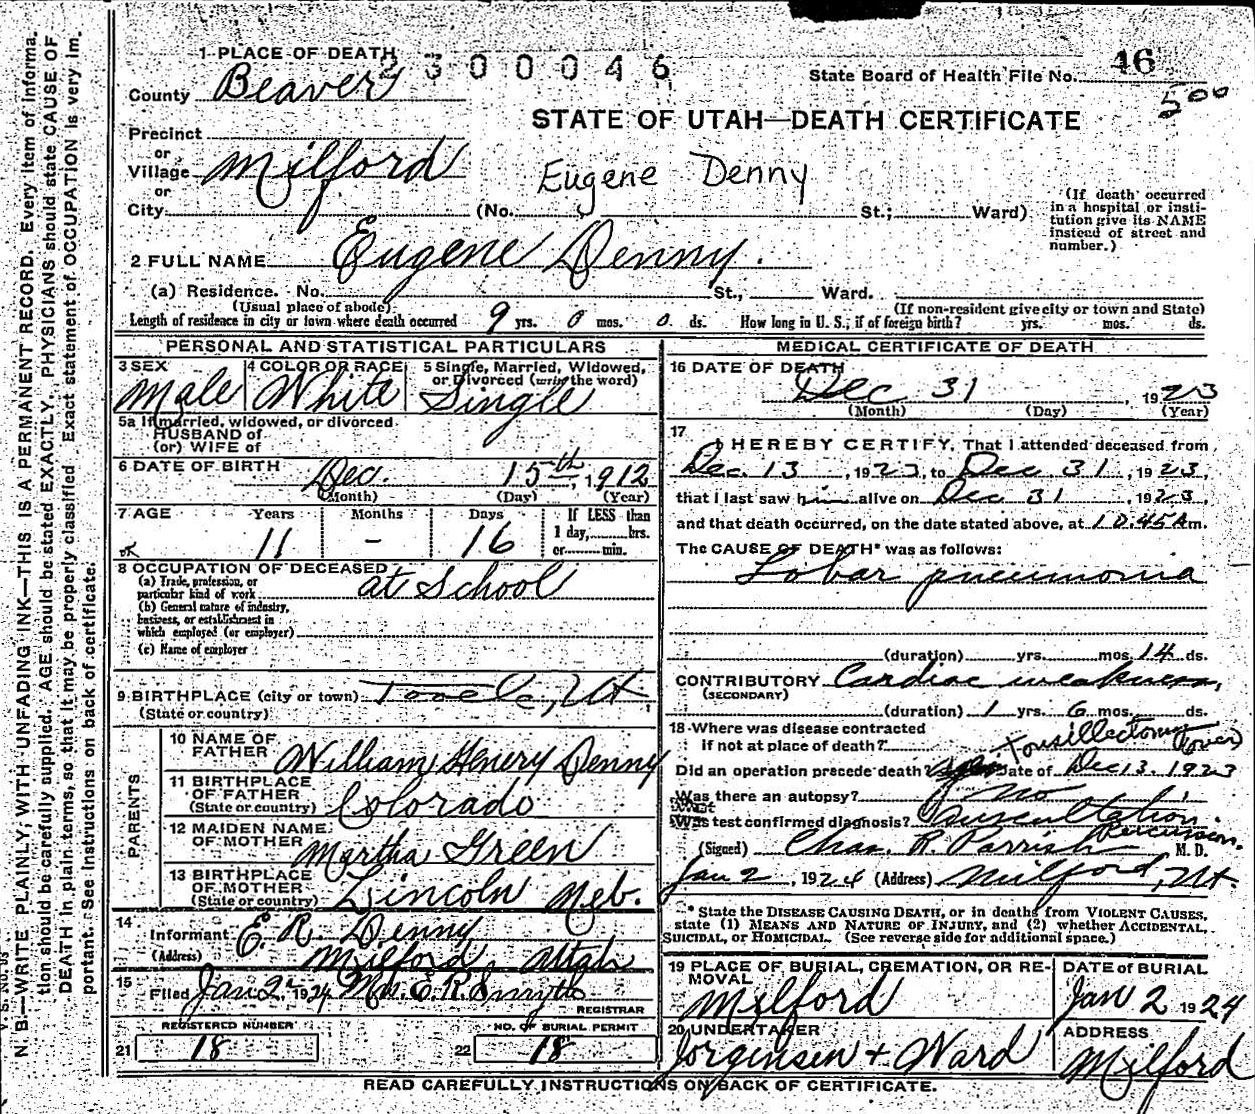 1 PLACE OF DEATH
2300046
State Board of Health File No. 46
County Beaver
500
STATE OF UTAH—DEATH CERTIFICATE
Precinct
or
Village Milford
Eugene Denny
or
City (No. St.; Ward)
(If death occurred in a hospital or insti-
tution give its NAME
instead of street and
number.)
2 FULL NAME Eugene Denny.
(a) Residence. No. St., Ward.
(Usual place of abode) (If non-resident give city or town and State)
Length of residence in city or town where death occurred 9 yrs. 0 mos. 0 ds. How long in U. S., if of foreign birth? yrs. mos. ds.
PERSONAL AND STATISTICAL PARTICULARS
3 SEX Male
4 COLOR OR RACE White
5 Single, Married, Widowed, or Divorced (write the word) Single
5a If married, widowed, or divorced
HUSBAND of
(or) WIFE of
6 DATE OF BIRTH Dec. 15th, 1912
(Month) (Day) (Year)
7 AGE Years Months Days If LESS than
1 day, hrs.
or min.
11 - 16
8 OCCUPATION OF DECEASED
(a) Trade, profession, or
particular kind of work at School
(b) General nature of industry,
business, or establishment in
which employed (or employer)
(c) Name of employer
9 BIRTHPLACE (city or town) Tooele, Ut
(State or country)
PARENTS
10 NAME OF
FATHER William Henry Denny
11 BIRTHPLACE
OF FATHER
(State or country) Colorado
12 MAIDEN NAME
OF MOTHER Martha Green
13 BIRTHPLACE
OF MOTHER
(State or country) Lincoln Neb.
14
Informant E. R. Denny
(Address) Milford Utah
15
Filed Jan 2 1924 Mrs. E. R. Smyth
REGISTRAR
REGISTERED NUMBER NO. of BURIAL PERMIT
21 18 22 18
MEDICAL CERTIFICATE OF DEATH
16 DATE OF DEATH
Dec 31, 1923
(Month) (Day) (Year)
17
I HEREBY CERTIFY, That I attended deceased from
Dec. 13, 1923, to Dec 31, 1923,
that I last saw him alive on Dec 31, 1923,
and that death occurred, on the date stated above, at 10.45 A m.
The CAUSE OF DEATH* was as follows:
Lobar pneumonia
(duration) yrs. mos. 14 ds.
CONTRIBUTORY Cardiac weakness,
(SECONDARY)
(duration) 1 yrs. 6 mos. ds.
18 Where was disease contracted
if not at place of death?
Tonsillectomy (over)
Did an operation precede death? Date of Dec 13. 1923
Was there an autopsy? no
What test confirmed diagnosis? Auscultation. Percussion.
(Signed) Chas. R. Parrish M. D.
Jan 2, 1924 (Address) Milford, Ut.
* State the DISEASE CAUSING DEATH, or in deaths from VIOLENT CAUSES,
state (1) MEANS AND NATURE OF INJURY, and (2) whether ACCIDENTAL,
SUICIDAL, or HOMICIDAL. (See reverse side for additional space.)
19 PLACE OF BURIAL, CREMATION, OR RE-
MOVAL Milford
DATE OF BURIAL
Jan 2 1924
20 UNDERTAKER
Jorgensen + Ward
ADDRESS
Milford
READ CAREFULLY INSTRUCTIONS ON BACK OF CERTIFICATE.
N. B.—WRITE PLAINLY, WITH UNFADING INK—THIS IS A PERMANENT RECORD. Every item of informa-
tion should be carefully supplied. AGE should be stated EXACTLY. PHYSICIANS should state CAUSE OF
DEATH in plain terms, so that it may be properly classified. Exact statement of OCCUPATION is very im-
portant. See instructions on back of certificate.